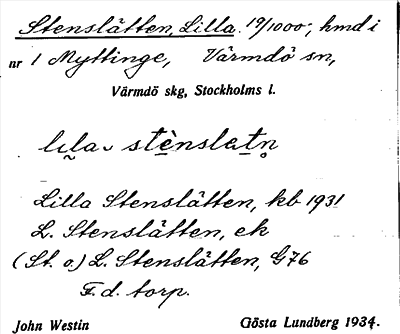 Stenslätten, Lilla. 19/1000; hmd i
nr 1 Myttinge, Värmdö sn,
Värmdö skg, Stockholms l.
lila stènslatn
Lilla Stenslätten, kb 1931
L. Stenslätten, ek
(St. o.) L. Stenslätten, G 76
F. d. torp.
John Westin Gösta Lundberg 1934.